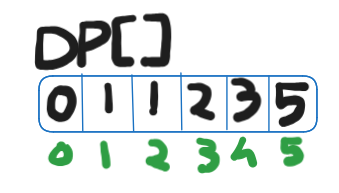 DP[]
0 1 1 2 3 5
0 1 2 3 4 5